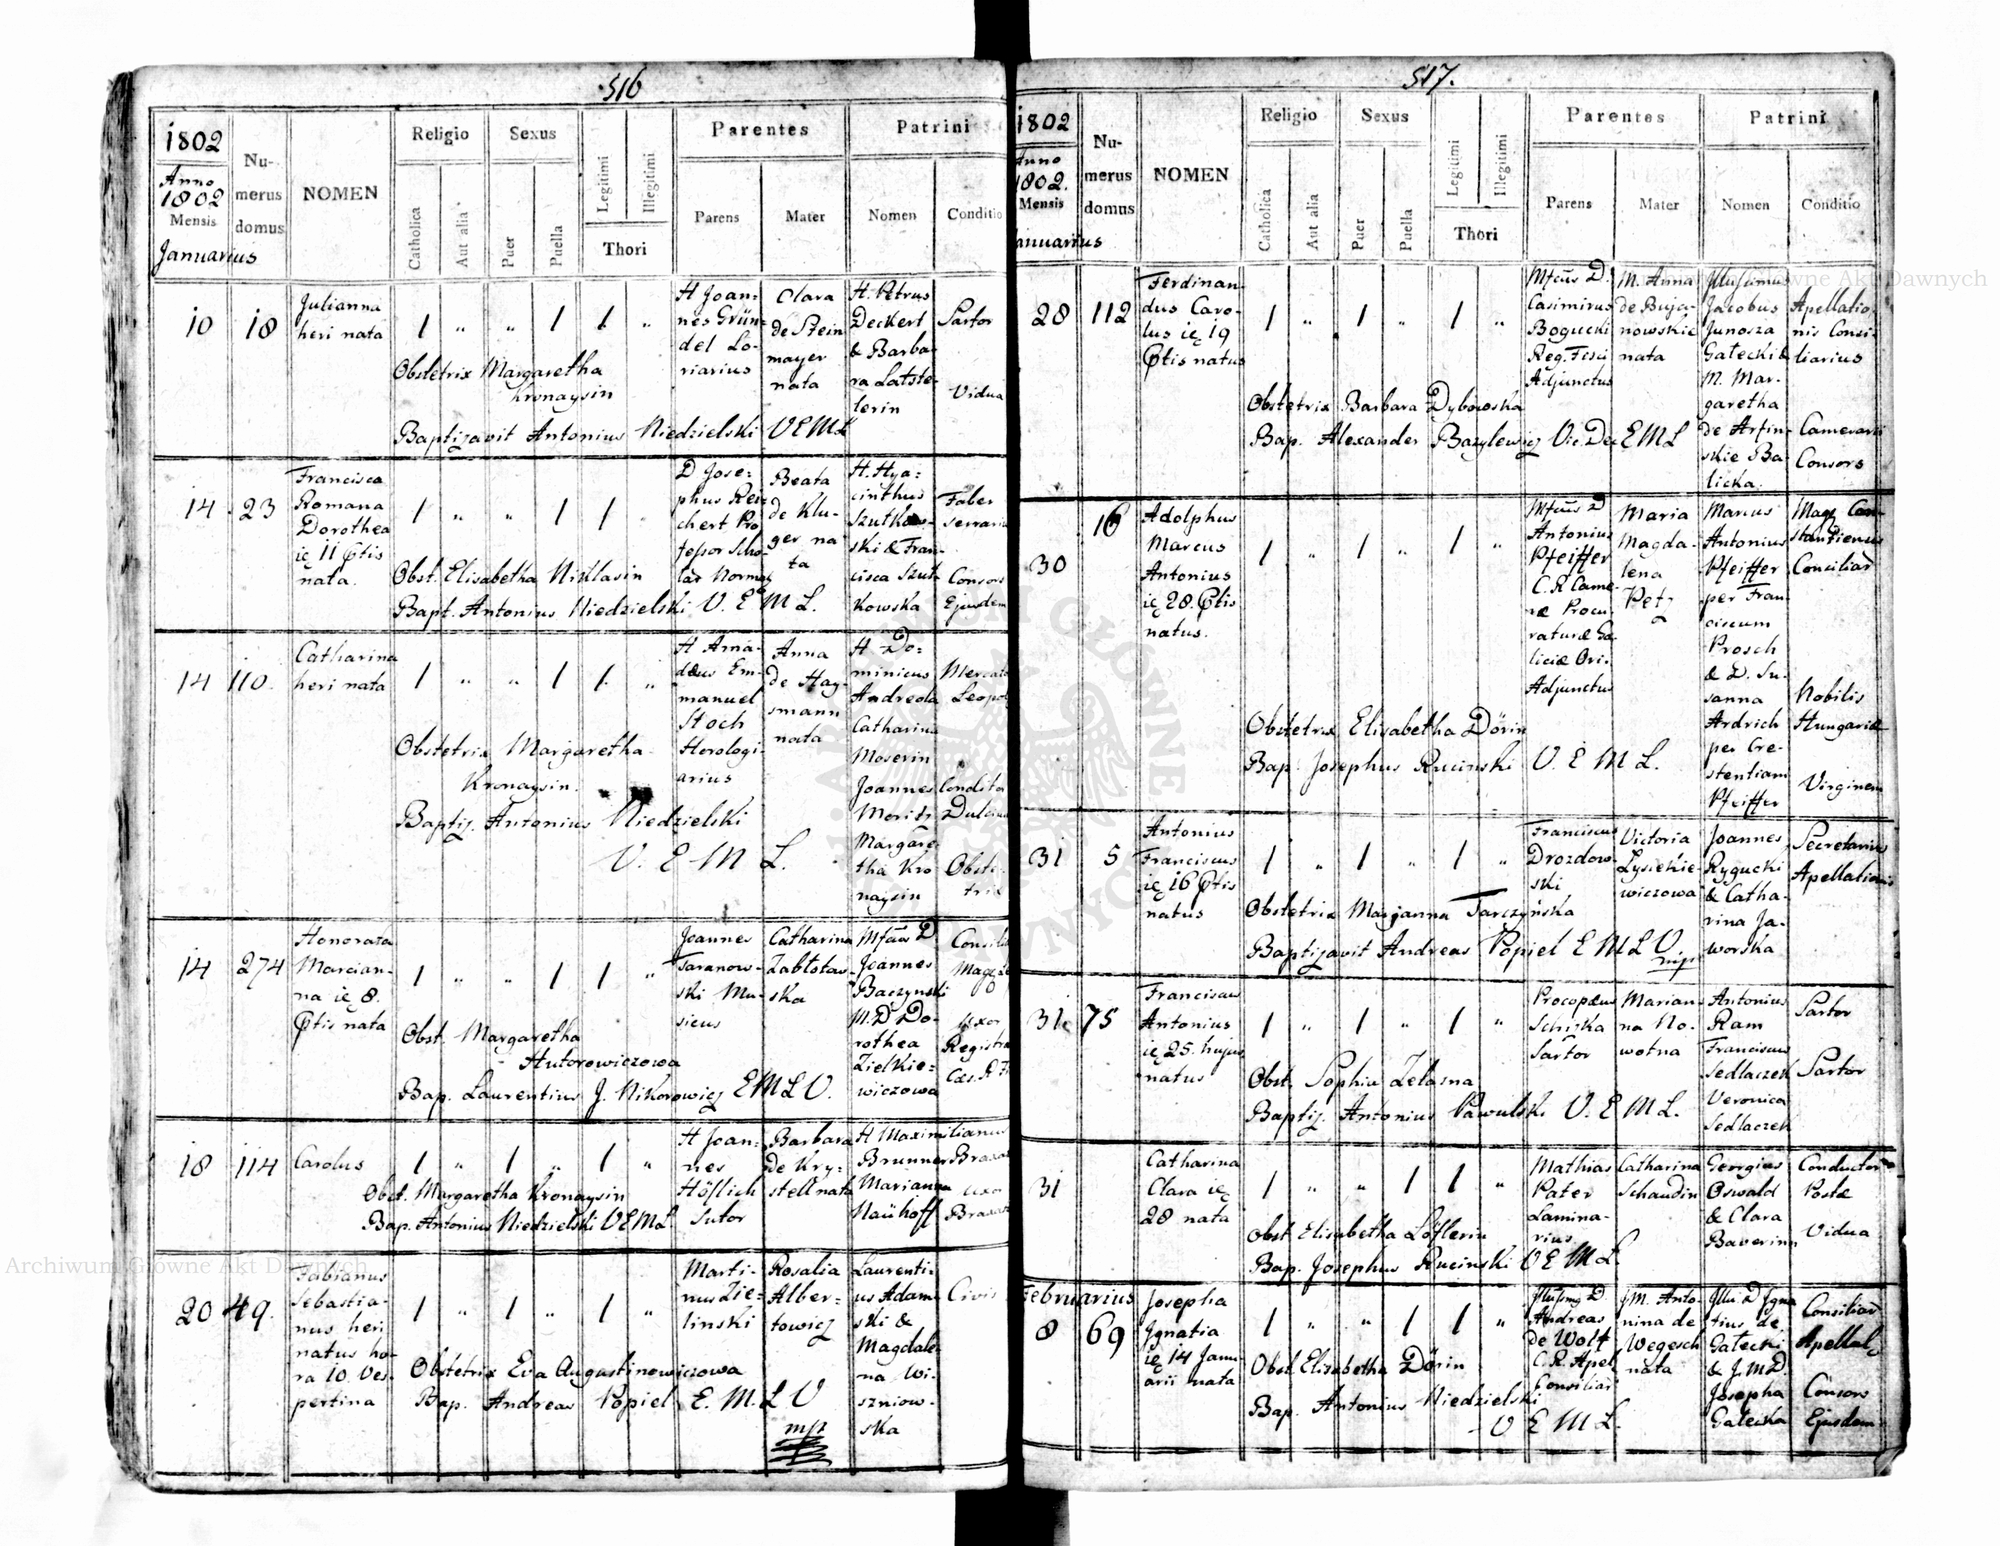 516
1802
Anno
1802
Mensis
Januarius
Numerus domus
NOMEN
Religio
Catholica
Aut alia
Sexus
Puer
Puella
Legitimi
Illegitimi
Thori
Parentes
Parens
Mater
Patrini
Nomen
Conditio
10
18
Julianna
heri nata
1 " " 1 1 "
H Joan-
nes Grün-
del Lo-
riarius
Clara
de Stein
mayer
nata
H. Petrus
Deckert
& Barba
ra Latste-
lerin
Sartor
Vidua
Obstetrix Margaretha
Kronaysin
Baptizavit Antonius Niedzielski V E M L
14
23
Francisca
Romana
Dorothea
ic 11 Ptis
nata.
1 " " 1 1 "
D Jose-
phus Rei-
chert Pro
fessor Scho
læ Normal
Beata
de Klu-
ger na
ta
H. Hya-
cinthus
Szutkow-
ski & Fran-
cisca Szut
kowska
Faber
serrari
Consors
Ejusdem
Obst. Elisabetha Nizllasin
Bapt. Antonius Niedzielski V. E M L.
14
110.
Catharina
heri nata
1 " " 1 1. "
H Ama-
dæus Em-
manuel
Stoch
Horologi-
arius
Anna
de Hay-
smann
nata
H Do-
minicus
Andreola
Catharina
Moserin
Joannes
Moritz
Margare-
tha Kro
naysin
Mercato
Leopol
Condito
Dulcium
Obste-
trix
Obstetrix Margaretha
Kronaysin.
Baptiz. Antonius Niedzielski
V. E M L.
14
274
Honorata
Marcian-
na ic 8.
Ptis nata
1 " " 1 1 "
Joannes
Taranow-
ski Mu-
sicus
Catharina
Zabłotow-
ska
Mfcus D
Joannes
Baczynski
M. D Do-
rothea
Zielkie-
wiczowa
Consili
Mag Le
Uxor
Registra
Cæs. R
Obst. Margaretha
Autorowiczowa
Bap. Laurentius J. Nikorowicz E M L V.
18
114
Carolus
1 " 1 " 1 "
H Joan-
nes
Höflich
Sutor
Barbara
de Kry-
stell nata
H Maximilianus
Brunner
Marianna
Naühoff
Braxa
uxor
Braxa
Obst. Margaretha Kronaysin
Bap. Antonius Niedzielski V E M L
20
49.
Fabianus
Sebastia-
nus heri
natus ho-
ra 10 Ves-
pertina
1 " 1 " 1 "
Marti-
nus Zie-
linski
Rosalia
Alber-
towicz
Laurenti-
us Adam-
ski &
Magdale-
na Wi-
szniow-
ska
Civis
Obstetrix Eva Augustinowiczowa
Bap. Andreas Popiel E. M. L V
mp
517.
1802
Anno
1802.
Mensis
Januarius
Numerus domus
NOMEN
Religio
Catholica
Aut alia
Sexus
Puer
Puella
Legitimi
Illegitimi
Thori
Parentes
Parens
Mater
Patrini
Nomen
Conditio
28
112
Ferdinan-
dus Caro-
lus ic 19
Ptis natus
1 " 1 " 1 "
Mfcus D.
Casimirus
Bogucki
Reg. Fisci
Adjunctus
M. Anna
de Buja-
nowskie
nata
Illusimus
Jacobus
Junosza
Gałecki &
M. Mar-
garetha
de Arfin-
skie Ba-
licka.
Apellatio
nis Consi-
liarius
Camerarii
Consors
Obstetrix Barbara Dybowska
Bap. Alexander Bazylewicz Vic. Dec E M L
30
16
Adolphus
Marcus
Antonius
ic 28. Ptis
natus.
1 " 1 " 1 "
Mfcus D
Antonius
Pfeiffer
C. R Came-
ræ Procu
raturæ Ga-
liciæ Ori-
Adjunctus
Maria
Magda-
lena
Petz
Marcus
Antonius
Pfeiffer
per Fran-
ciscum
Prosch
& D. Su-
sanna
Ardrich
per Cre-
stentiam
Pfeiffer
Mag Con-
stantiensis
Consiliar
Nobilis
Hungariæ
Virginem
Obstetrix Elisabetha Dörin
Bap. Josephus Rucinski V. E M L.
31
5
Antonius
Franciscus
ic 16 Ptis
natus
1 " 1 " 1 "
Franciscus
Drozdow-
ski
Victoria
Lysiekie-
wiczowa
Joannes
Rygucki
& Catha-
rina Ja-
worska
Secretarius
Apellationis
Obstetrix Marjanna Tarczyńska
Baptizavit Andreas Popiel E M L V.
mp
31
75
Franciscus
Antonius
ic 25. hujus
natus
1 " 1 " 1 "
Procopæus
Schiska
Sartor
Marian-
na No-
wotna
Antonius
Ram
Franciscus
Sedlaczek
Veronica
Sedlaczek
Sartor
Sartor
Obst. Sophia Zelasna
Baptiz. Antonius Pawulski V. E M L.
31
Catharina
Clara ic
28 nata
1 " " 1 1 "
Mathias
Pater
Lamina-
rius
Catharina
Schaudin
Georgius
Oswald
& Clara
Baverinn
Conductor
Postæ
Vidua
Obst Elisabetha Löflerin
Bap. Josephus Rucinski V E M L.
Februarius
8
69
Josepha
Ignatia
ic 14 Janu-
arii nata
1 " " 1 1 "
Illusimg D
Andreas
de Wolf
C. R. Apel
Consiliar
J M. Anto-
nina de
Wegesch
nata
Illu. D Igna
tius de
Gałecki
& J. M D.
Josepha
Gałecka
Consiliar
Apellat
Consors
Ejusdem
Obst Elisabetha Dörin
Bap. Antonius Niedzielski
V E M L.
Archiwum Główne Akt Dawnych
Archiwum Główne Akt Dawnych